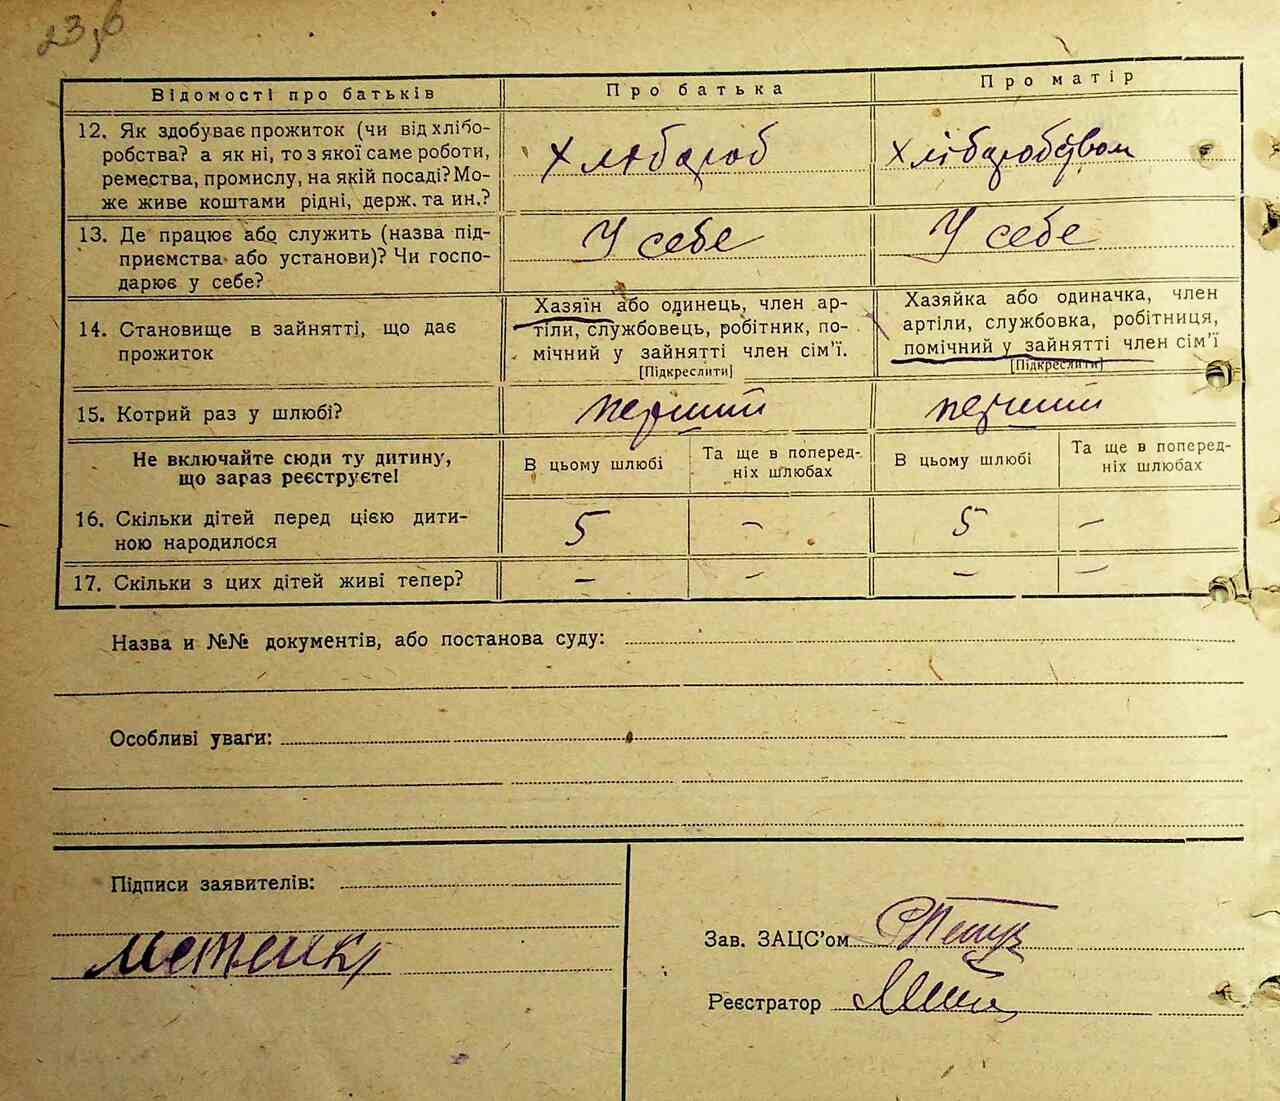 23,б
Відомості про батьків
Про батька
Про матір
12. Як здобуває прожиток (чи від хлібо-
робства? а як ні, то з якої саме роботи,
ремества, промислу, на якій посаді? Мо-
же живе коштами рідні, держ. та ин.?
Хлібороб
Хліборобством
13. Де працює або служить (назва під-
приємства або установи)? Чи госпо-
дарює у себе?
У себе
У себе
14. Становище в зайнятті, що дає
прожиток
Хазяїн або одинець, член ар-
тіли, службовець, робітник, по-
мічний у зайнятті член сім'ї.
[Підкреслити]
Хазяйка або одиначка, член
артіли, службовка, робітниця,
помічний у зайнятті член сім'ї
[Підкреслити]
15. Котрий раз у шлюбі?
перший
перший
Не включайте сюди ту дитину,
що зараз реєструєте!
В цьому шлюбі
Та ще в поперед-
ніх шлюбах
В цьому шлюбі
Та ще в поперед-
ніх шлюбах
16. Скільки дітей перед цією дити-
ною народилося
5
–
5
–
17. Скільки з цих дітей живі тепер?
–
–
–
–
Назва и №№ документів, або постанова суду:
Особливі уваги:
Підписи заявителів:
Зав. ЗАЦС'ом
Реєстратор